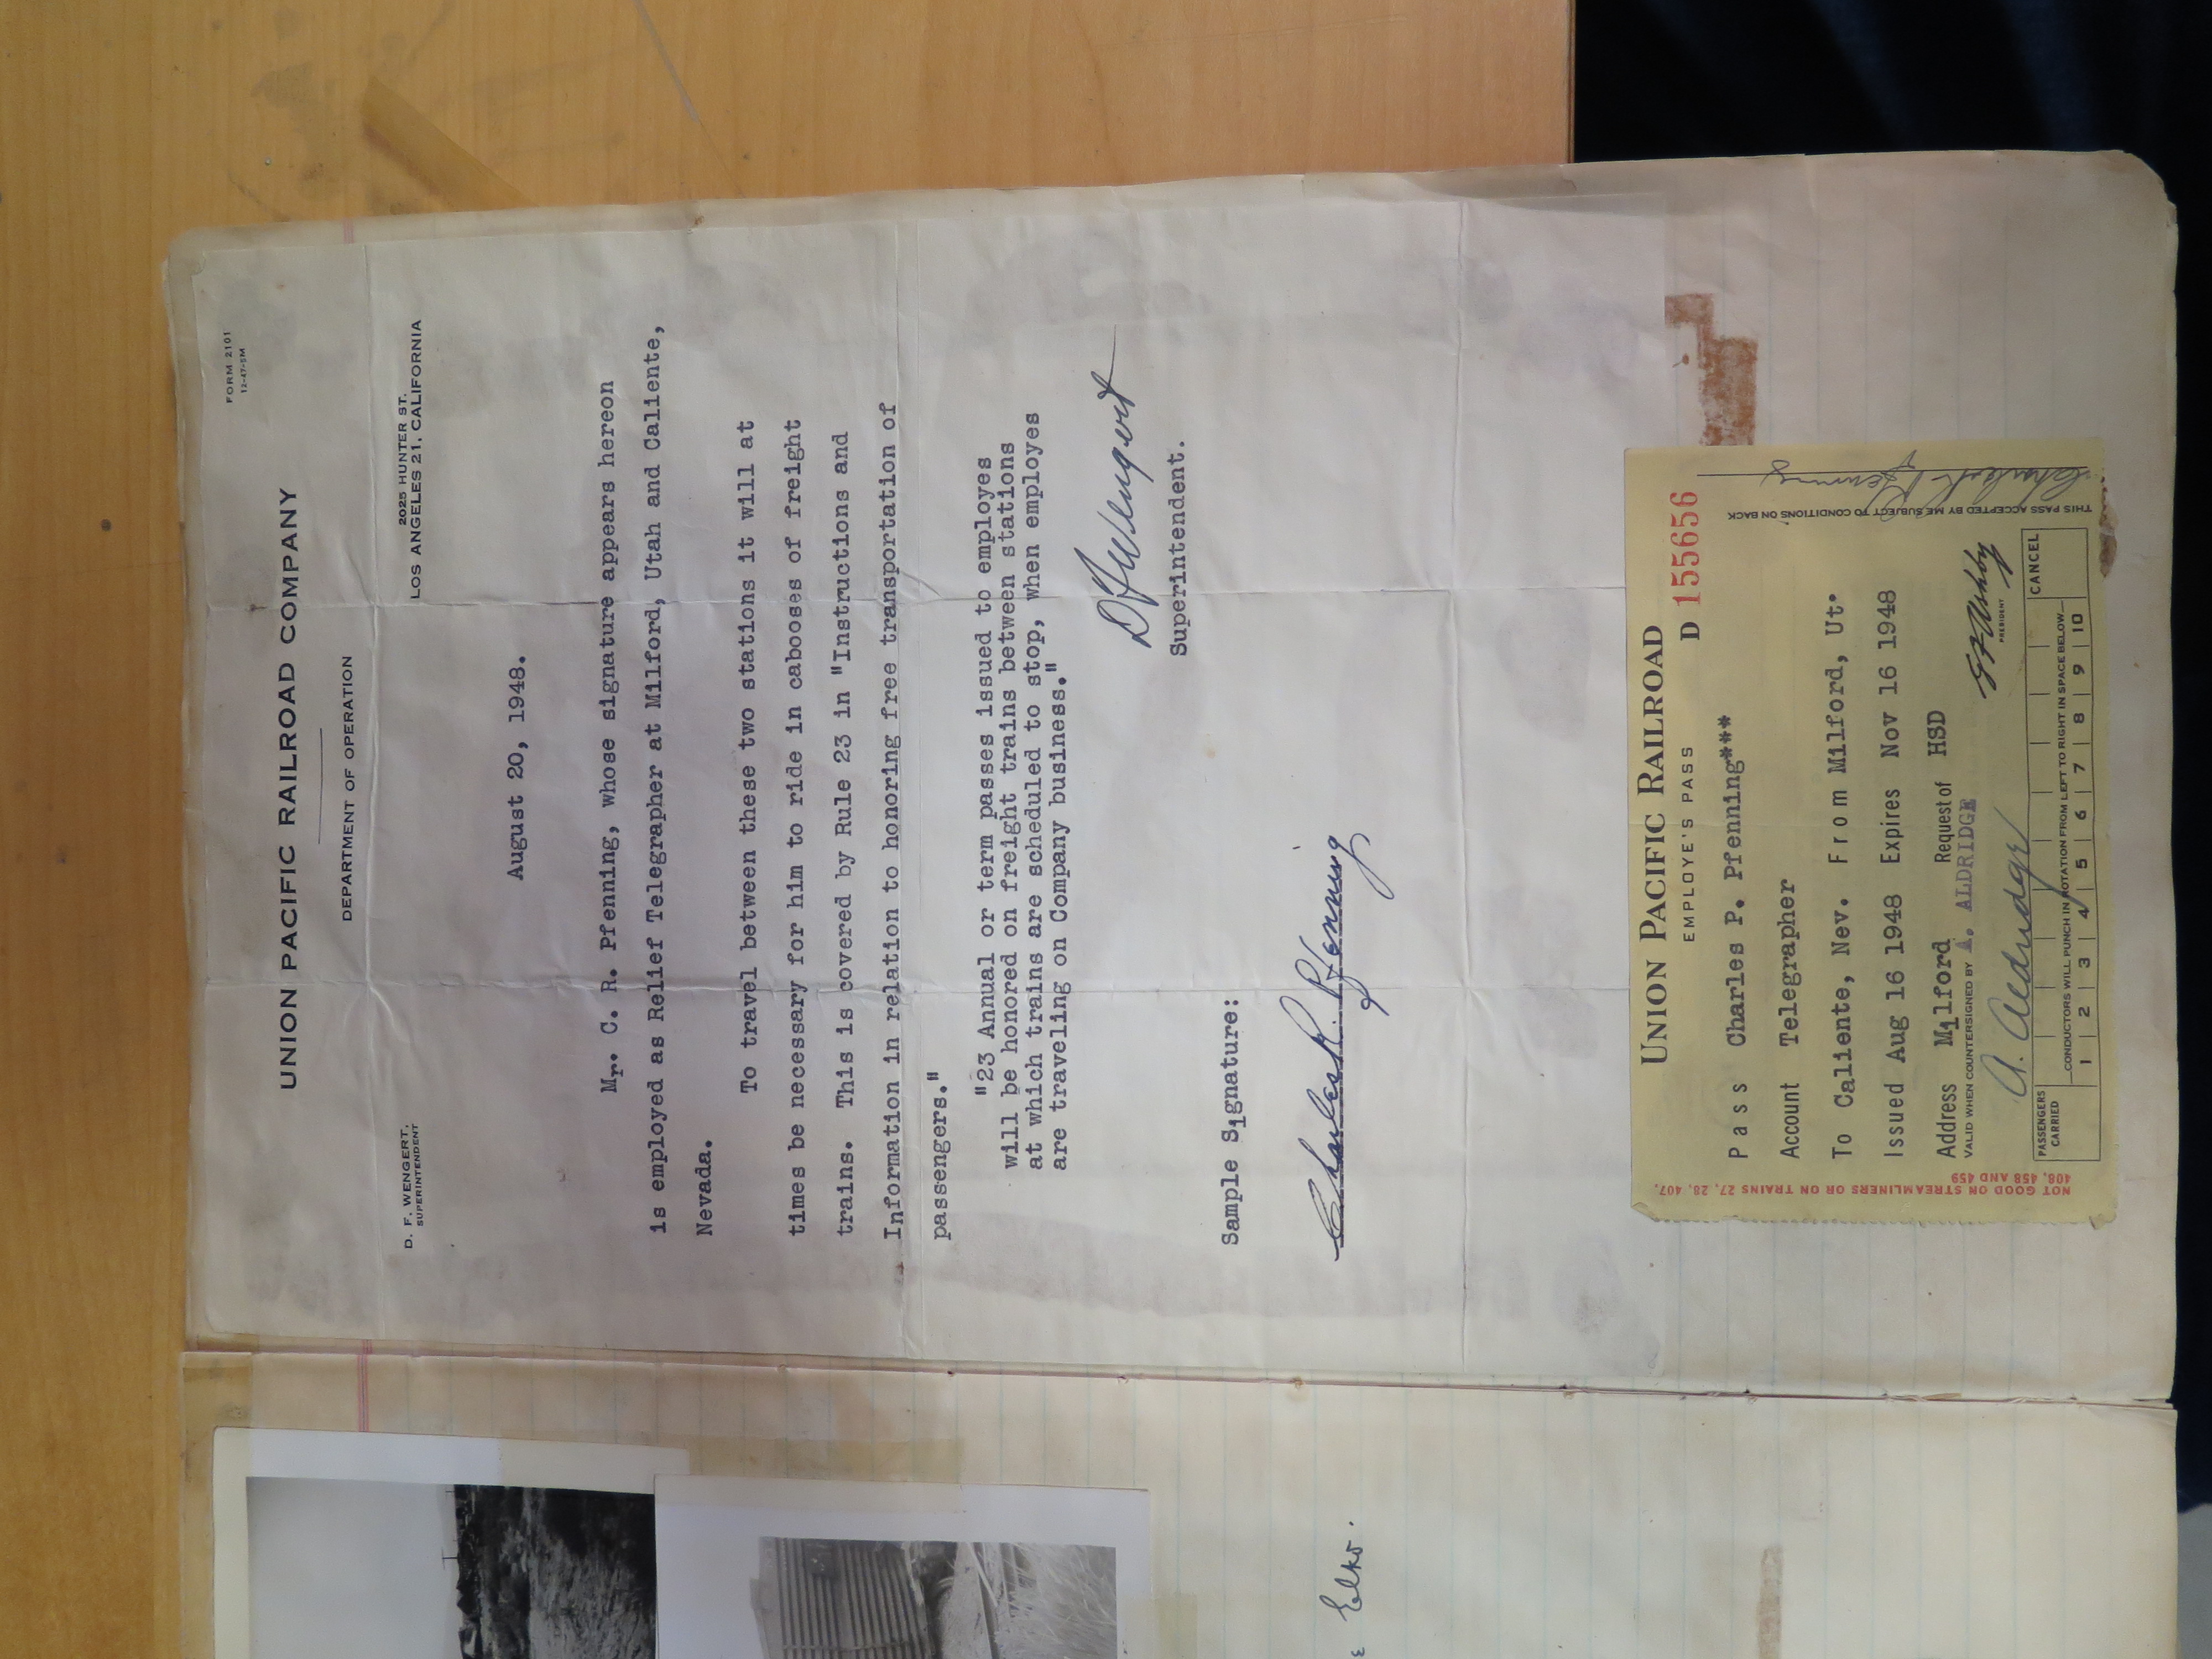 FORM 2101
12-47-5M
UNION PACIFIC RAILROAD COMPANY
DEPARTMENT OF OPERATION
D. F. WENGERT,
SUPERINTENDENT
2025 HUNTER ST.
LOS ANGELES 21, CALIFORNIA
August 20, 1948.
Mr. C. R. Pfenning, whose signature appears hereon
is employed as Relief Telegrapher at Milford, Utah and Caliente,
Nevada.
To travel between these two stations it will at
times be necessary for him to ride in cabooses of freight
trains. This is covered by Rule 23 in "Instructions and
Information in relation to honoring free transportation of
passengers."
"23 Annual or term passes issued to employes
will be honored on freight trains between stations
at which trains are scheduled to stop, when employes
are traveling on Company business."
D F Wengert
Superintendent.
Sample Signature:
Charles R. Pfenning
UNION PACIFIC RAILROAD
EMPLOYE'S PASS D 155656
Pass Charles P. Pfenning***
Account Telegrapher
To Caliente, Nev. From Milford, Ut.
Issued Aug 16 1948 Expires Nov 16 1948
Address Milford Request of HSD
VALID WHEN COUNTERSIGNED BY A. ALDRIDGE
A. Aldridge
G F Ashby
PRESIDENT
PASSENGERS
CARRIED
CONDUCTORS WILL PUNCH IN ROTATION FROM LEFT TO RIGHT IN SPACE BELOW
CANCEL
1 2 3 4 5 6 7 8 9 10
NOT GOOD ON STREAMLINERS OR ON TRAINS 27, 28, 407,
408, 458 AND 459
THIS PASS ACCEPTED BY ME SUBJECT TO CONDITIONS ON BACK
Charles R Pfenning
Elko.